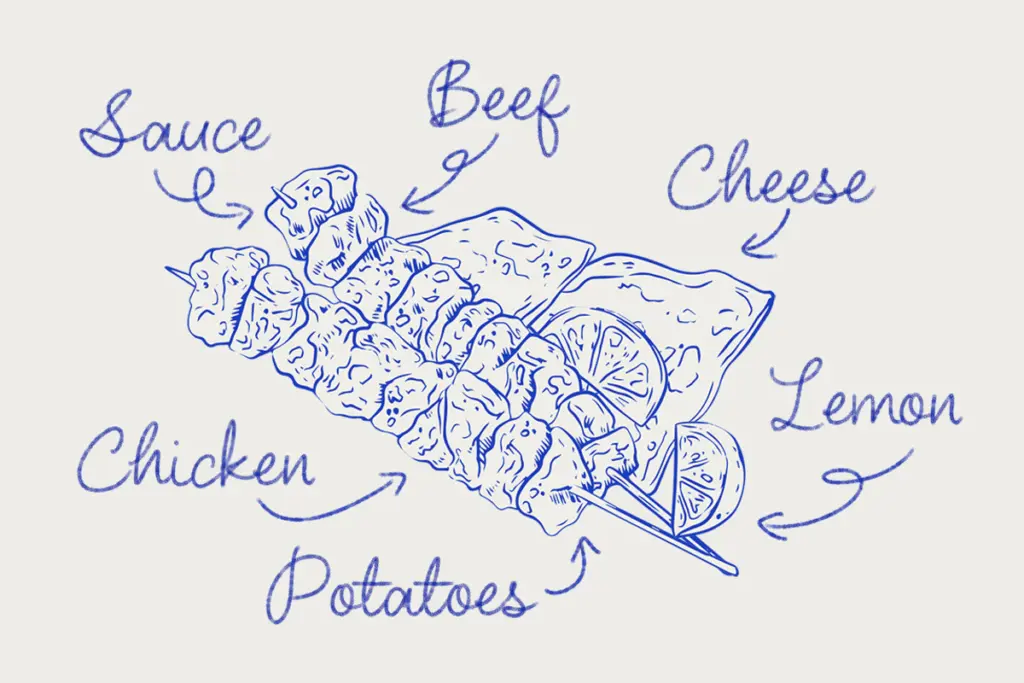 Beef
Sauce
Cheese
Lemon
Chicken
Potatoes